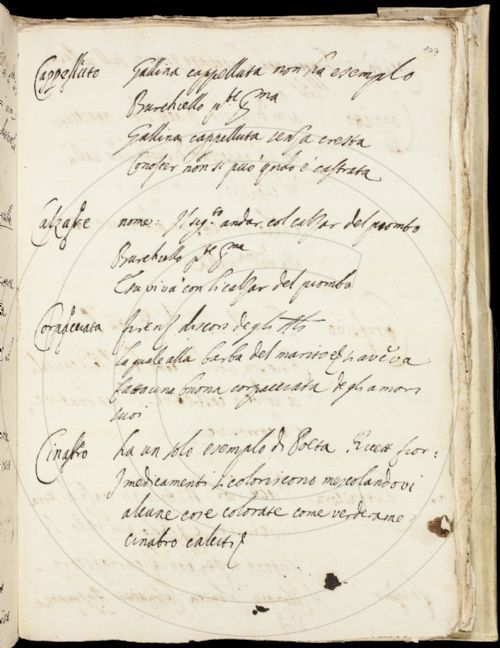 109
Cappelluto Gallina cappelluta non ha esempio
Burchiello pte
Gallina cappelluta senza cresta
Conoscer non si può qndo è castrata
Calzare nome: andar col calzar del piombo
Burchiello pte
con li calzar del piombo
Corpacciata discors degli
la quale alla barba del marito si aveva
fatta una buona corpacciata degli amori
suoi
Cinabro ha un solo esemplo di Poeta Ricett fior:
I medicamenti si coloriscono mescolandovi
alcune cose colorate come verderame
cinabro